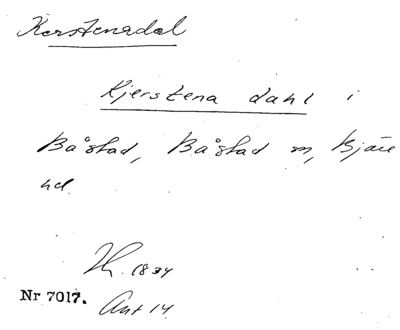 Kerstenadal
Kjerstena dahl i
Båstad, Båstad sn, Bjäre
hd
Th. 1834
Nr 7017.
Ant 14